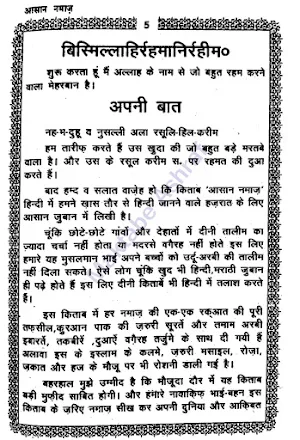 आसान नमाज़
5
बिस्मिल्लाहिर्रहमानिर्रहीम०
शुरू करता हूँ मैं अल्लाह के नाम से जो बहुत रहम करने
वाला मेहरबान है।
अपनी बात
नह-म-दुहू व नुसल्ली अला रसूलि-हिल-करीम
हम तारीफ करते हैं उस खुदा की जो बहुत बड़े मरतबे
वाला है। और उस के रसूल करीम स. पर रहमत की दुआ
करते हैं।
बाद हम्द व सलात वाज़ेह हो कि किताब 'आसान नमाज़'
हिन्दी में हमने खास तौर से हिन्दी जानने वाले हज़रात के लिए
आसान ज़ुबान में लिखी है।
चूंकि छोटे-छोटे गांवों और देहातों में दीनी तालीम का
ज़्यादा चर्चा नहीं होता या मदरसे वगैरह नहीं होते इस लिए
हमारे यह मुसलमान भाई अपने बच्चों को उर्दू-अरबी की तालीम
नहीं दिला सकते। ऐसे लोग चूंकि खुद भी हिन्दी,मराठी ज़ुबान
ही पढ़े होते हैं इस लिए दीनी किताबें भी हिन्दी में तलाश करते
हैं।
इस किताब में हर नमाज़ की एक-एक रक्अत की पूरी
तफ़सील,कुरआन पाक की जरुरी सूरतें और तमाम अरबी
इबारतें, तकबीरें ,दुआऐं वगैरह तर्जुमे के साथ दी गयीं हैं
अलावा इस के इस्लाम के कलमे, जरुरी मसाइल, रोज़ा,
जकात और हज के मौजू पर भी रोशनी डाली गई है।
बहरहाल मुझे उम्मीद है कि मौजूदा दौर में यह किताब
बड़ी मुफ़ीद साबित होगी। और हमारे नावाकिफ़ भाई-बहन इस
किताब के ज़रिए नमाज़ सीख कर अपनी दुनिया और आक़िबत